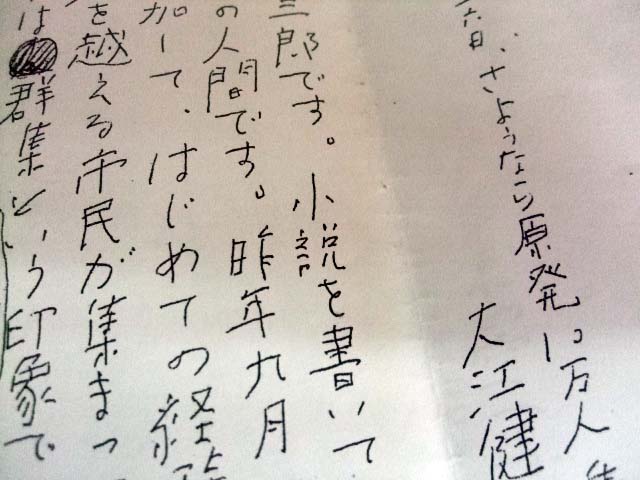 六日、さようなら原発10万人
大江健
三郎です。小説を書いて
の人間です。昨年九月
加して、はじめての経
を越える市民が集まっ
は群集という印象で